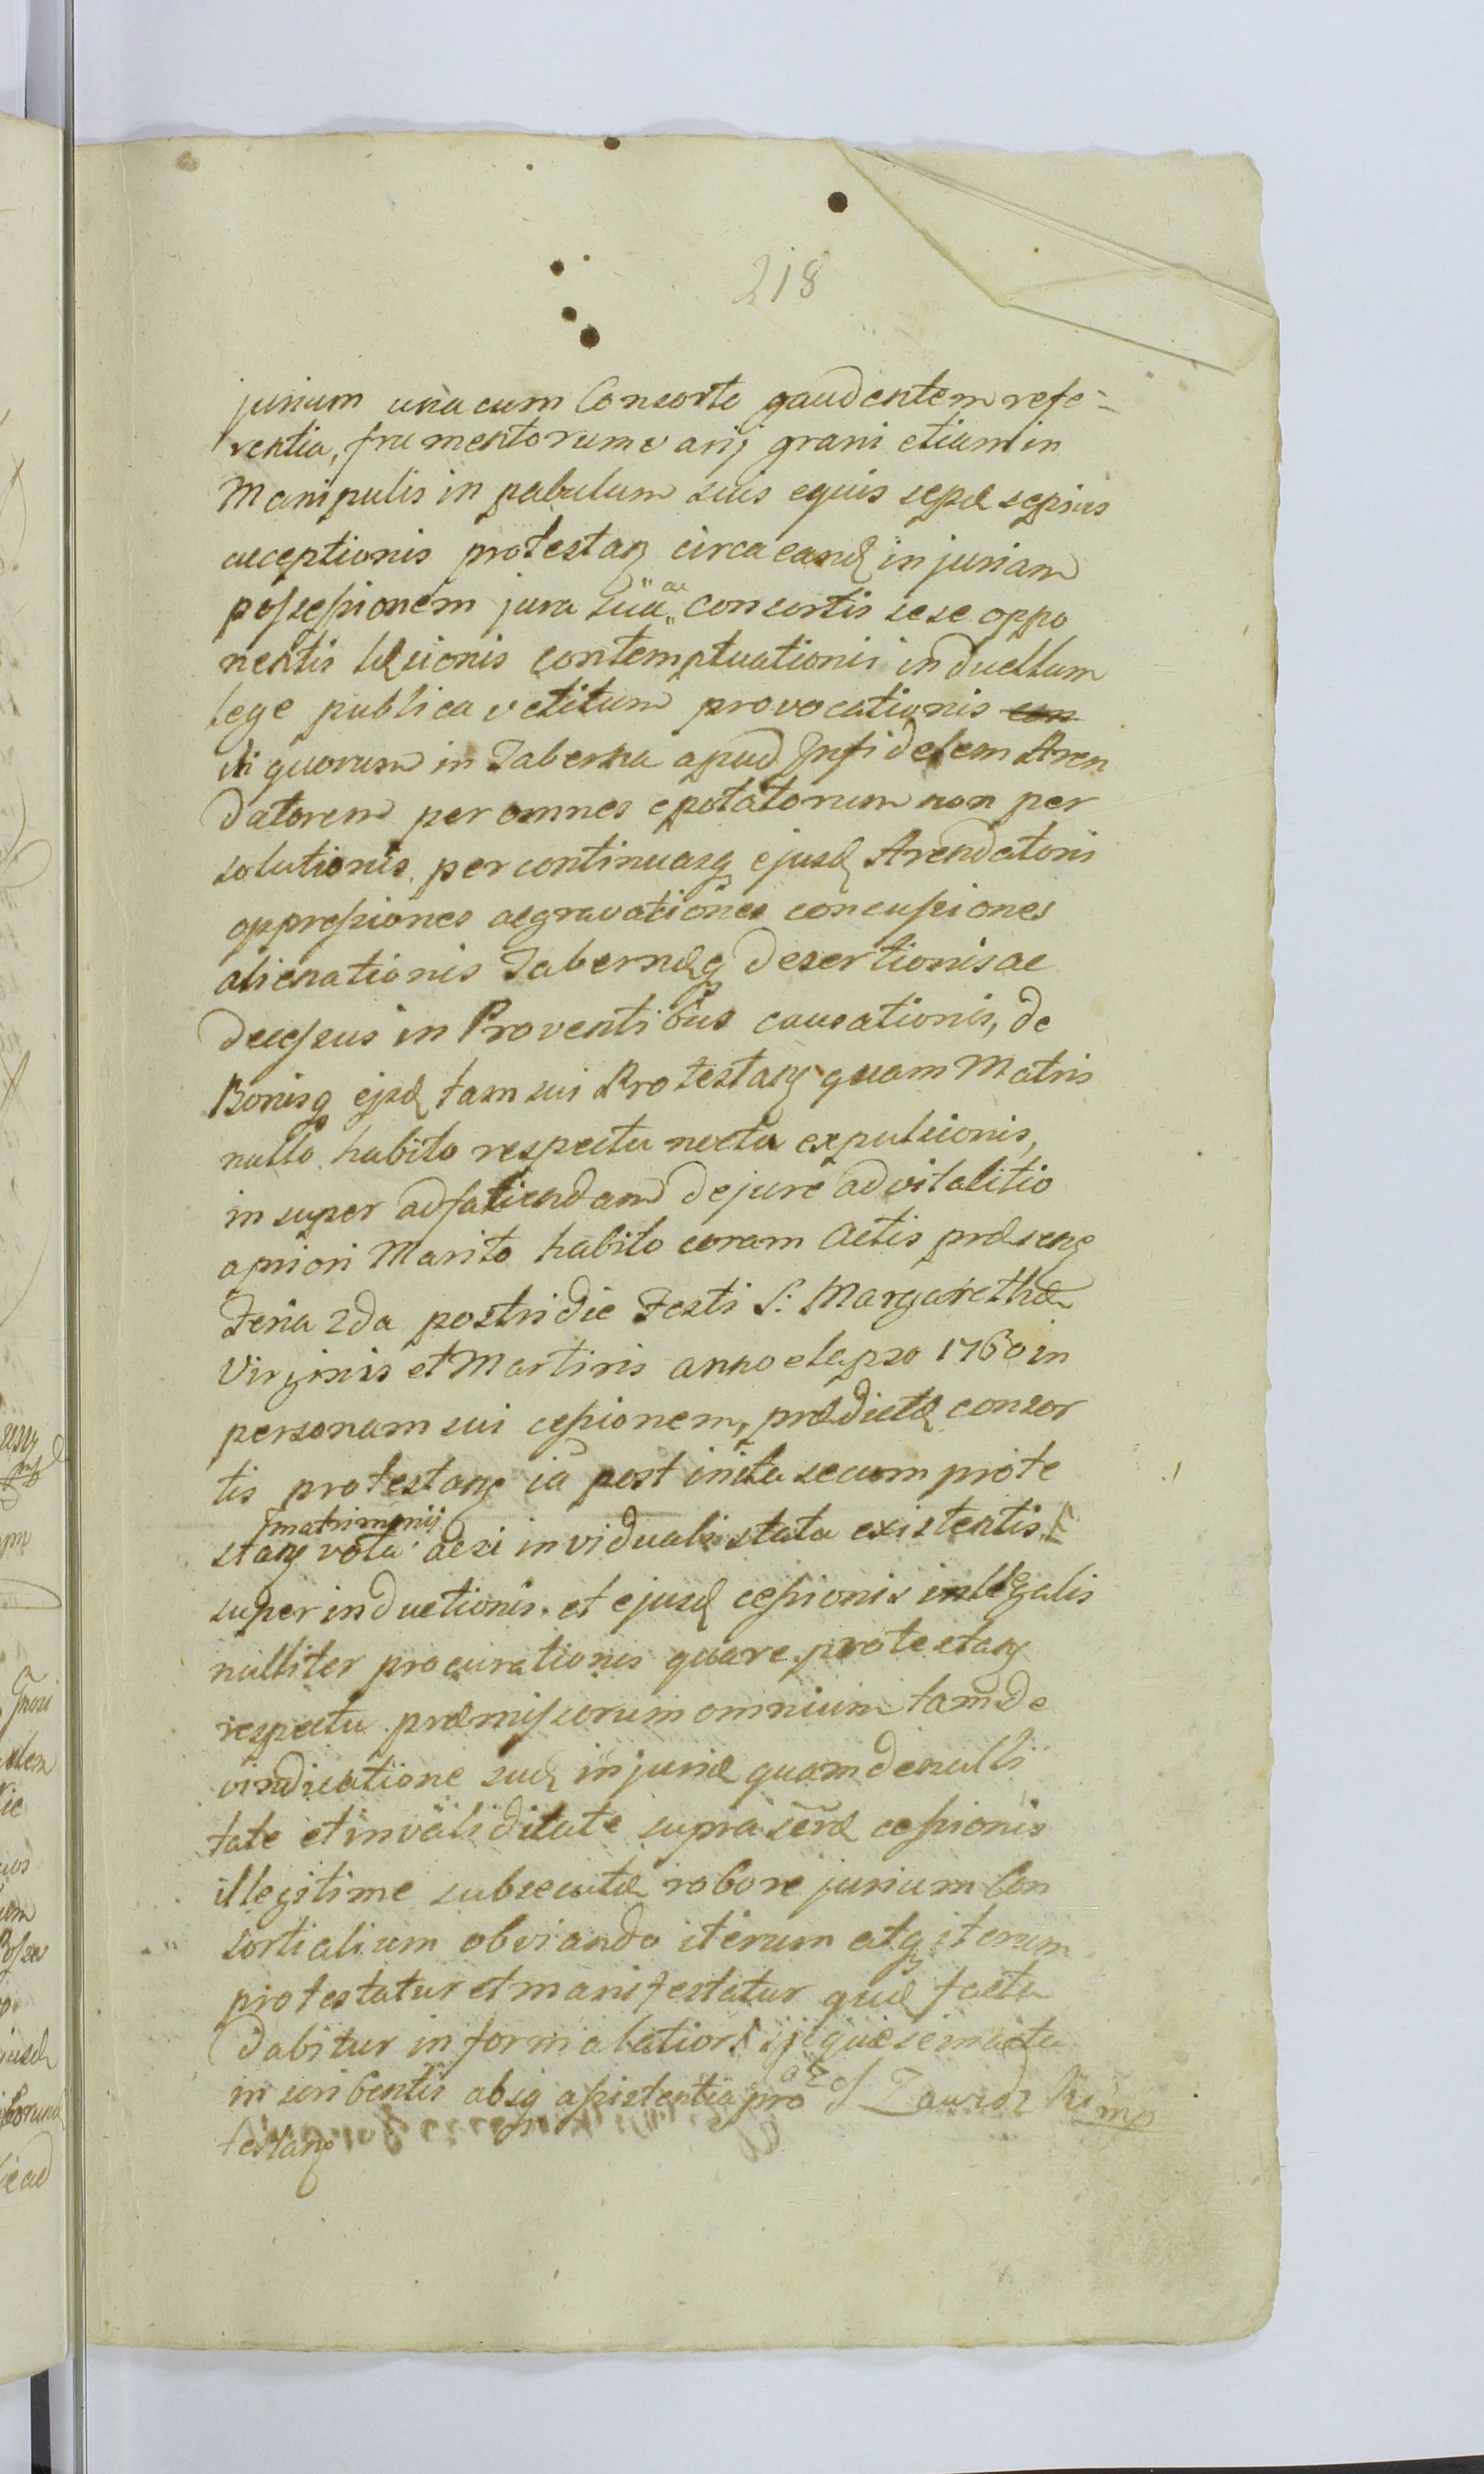 218
jurium una cum Consorte gaudentem refe=
rentia, frumentorum varij grani etiam in
Manipulis in pabulum suis equis sepæ sepius
acceptionis protestanꝫ circa eand injuriam
possessionem jura suæ consortis sese oppo
nentis læsionis contemptuationis in duellum
lege publica vetitum provocationis con
quorum in Taberna apud Infidelem Aren
datorem per omnes epotatorum non per
solutionis, per continuasq ejusd Arendatoris
oppressiones aggravationes concussiones
alienationis Tabernæq desertionis ac
decessus in Proventibus causationis, de
Bonisq ejsd tam sui Protestanꝫ quam Matris
nullo habito respectu noctu expulsionis,
insuper ad faciendam de jure advitalitio
a priori Marito habito coram Actis præsenꝫ
Feria 2da postridie Festi S: Margarethæ
Virginis et Martiris anno elapso 1760 in
personam sui cessionem, prædictæ consor
tis protestanꝫ ia post inita secum prote
stanꝫ matrimonij vota acsi in viduali statu existentis
superinductionis et ejusd cessionis illegalis
nulliter procurationis quare protestanꝫ
respectu præmissorum omnium tam de
vindicatione suæ injuriæ quam de nulli
tate et invaliditate supra sæ cessionis
illegitime subsecutæ robore jurium Con
sortialium obviando iterum atq iterum
protestatur et manifestatur quæ facta
dabitur in forma latiori si
inscribentis absq assistentia pro
testanꝫ
mp